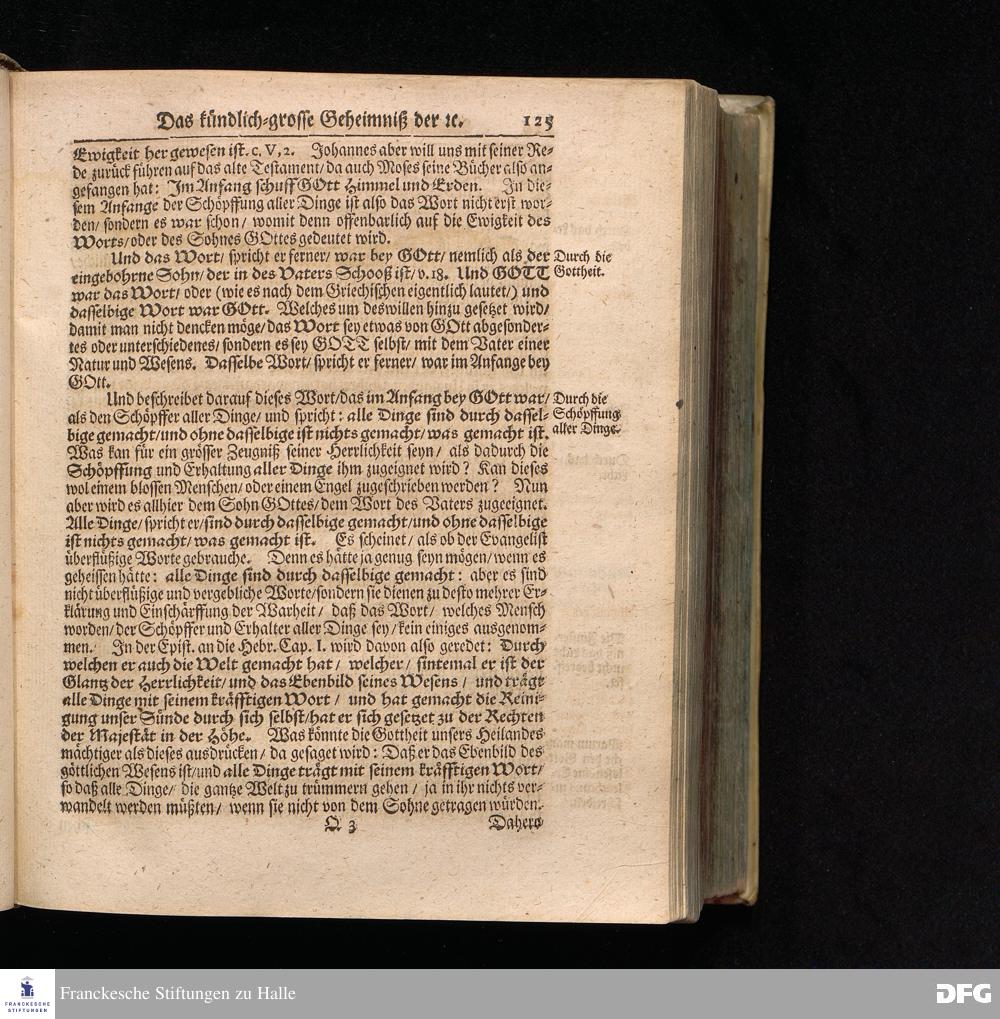 Das kündlich-grosse Geheimniß der ꝛc. 125
Ewigkeit her gewesen ist. c, V, 2. Johannes aber will uns mit seiner Re-
de zurück führen auf das alte Testament/ da auch Moses seine Bücher also an-
gefangen hat: Im Anfang schuff GOtt Himmel und Erden. In die-
sem Anfange der Schöpffung aller Dinge ist also das Wort nicht erst wor-
den/ sondern es war schon/ womit denn offenbarlich auf die Ewigkeit des
Worts/ oder des Sohnes GOttes gedeutet wird.
Und das Wort/ spricht er ferner/ war bey GOtt/ nemlich als der
eingebohrne Sohn/ der in des Vaters Schooß ist/ v. 18. Und GOTT
war das Wort/ oder (wie es nach dem Griechischen eigentlich lautet/) und
dasselbige Wort war GOtt. Welches um deswillen hinzu gesetzet wird/
damit man nicht dencken möge/ das Wort sey etwas von GOtt abgesonder-
tes oder unterschiedenes/ sondern es sey GOTT selbst/ mit dem Vater einer
Natur und Wesens. Dasselbe Wort/ spricht er ferner/ war im Anfange bey
GOtt.
Durch die
Gottheit.
Und beschreibet darauf dieses Wort/ das im Anfang bey GOtt war/
als den Schöpffer aller Dinge/ und spricht: alle Dinge sind durch dassel-
bige gemacht/ und ohne dasselbige ist nichts gemacht/ was gemacht ist.
Was kan für ein grösser Zeugniß seiner Herrlichkeit seyn/ als dadurch die
Schöpffung und Erhaltung aller Dinge ihm zugeignet wird? Kan dieses
wol einem blossen Menschen/ oder einem Engel zugeschrieben werden? Nun
aber wird es allhier dem Sohn GOttes/ dem Wort des Vaters zugeeignet.
Alle Dinge/ spricht er/ sind durch dasselbige gemacht/ und ohne dasselbige
ist nichts gemacht/ was gemacht ist. Es scheinet/ als ob der Evangelist
überflüßige Worte gebrauche. Denn es hätte ja genug seyn mögen/ wenn es
geheissen hätte: alle Dinge sind durch dasselbige gemacht: aber es sind
nicht überflüßige und vergebliche Worte/ sondern sie dienen zu desto mehrer Er-
klärung und Einschärffung der Warheit/ daß das Wort/ welches Mensch
worden/ der Schöpffer und Erhalter aller Dinge sey/ kein einiges ausgenom-
men. In der Epist. an die Hebr. Cap. I. wird davon also geredet: Durch
welchen er auch die Welt gemacht hat/ welcher/ sintemal er ist der
Glantz der Herrlichkeit/ und das Ebenbild seines Wesens/ und trägt
alle Dinge mit seinem kräfftigen Wort/ und hat gemacht die Reini-
gung unser Sünde durch sich selbst/ hat er sich gesetzet zu der Rechten
der Majestät in der Höhe. Was könnte die Gottheit unsers Heilandes
mächtiger als dieses ausdrücken/ da gesaget wird: Daß er das Ebenbild des
göttlichen Wesens ist/ und alle Dinge trägt mit seinem kräfftigen Wort/
so daß alle Dinge/ die gantze Welt zu trümmern gehen/ ja in ihr nichts ver-
wandelt werden müßten/ wenn sie nicht von dem Sohne getragen würden.
Durch die
Schöpffung
aller Dinge.
Q 3 Dahero
FRANCKESCHE
STIFTUNGEN
Franckesche Stiftungen zu Halle
DFG